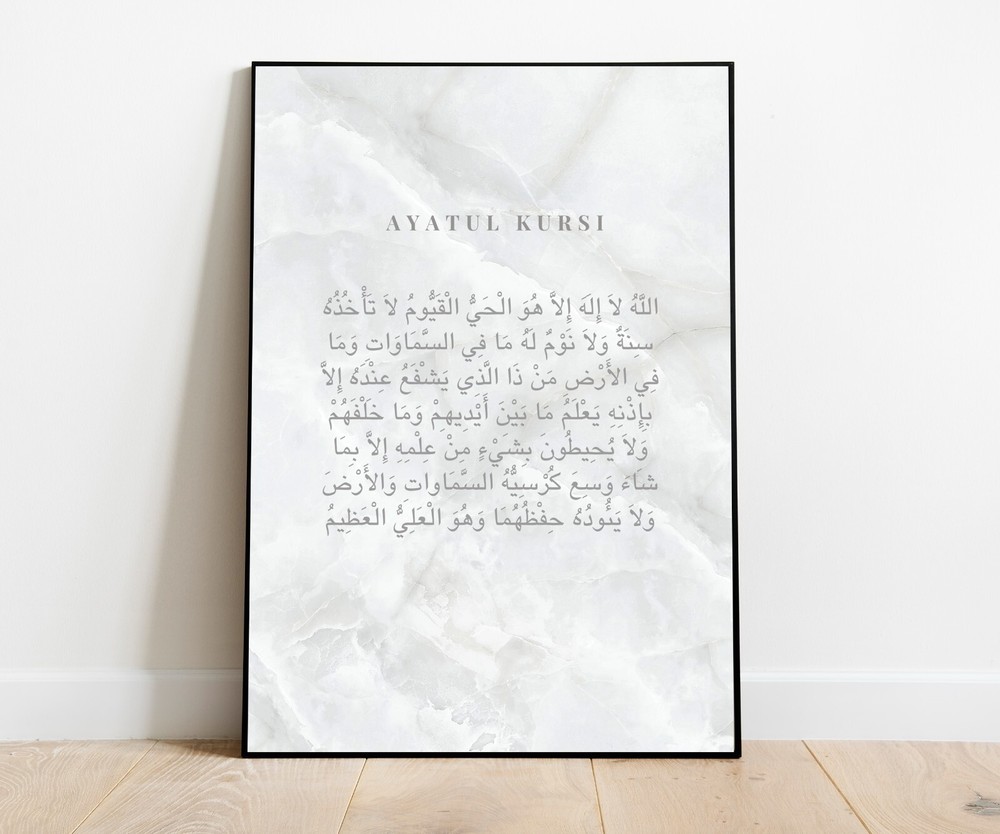 AYATUL KURSI
اللَّهُ لاَ إِلَهَ إِلاَّ هُوَ الْحَيُّ الْقَيُّومُ لاَ تَأْخُذُهُ
سِنَةٌ وَلاَ نَوْمٌ لَهُ مَا فِي السَّمَاوَاتِ وَمَا
فِي الأَرْضِ مَنْ ذَا الَّذِي يَشْفَعُ عِنْدَهُ إِلاَّ
بِإِذْنِهِ يَعْلَمُ مَا بَيْنَ أَيْدِيهِمْ وَمَا خَلْفَهُمْ
وَلاَ يُحِيطُونَ بِشَيْءٍ مِنْ عِلْمِهِ إِلاَّ بِمَا
شَاءَ وَسِعَ كُرْسِيُّهُ السَّمَاوَاتِ وَالأَرْضَ
وَلاَ يَئُودُهُ حِفْظُهُمَا وَهُوَ الْعَلِيُّ الْعَظِيمُ